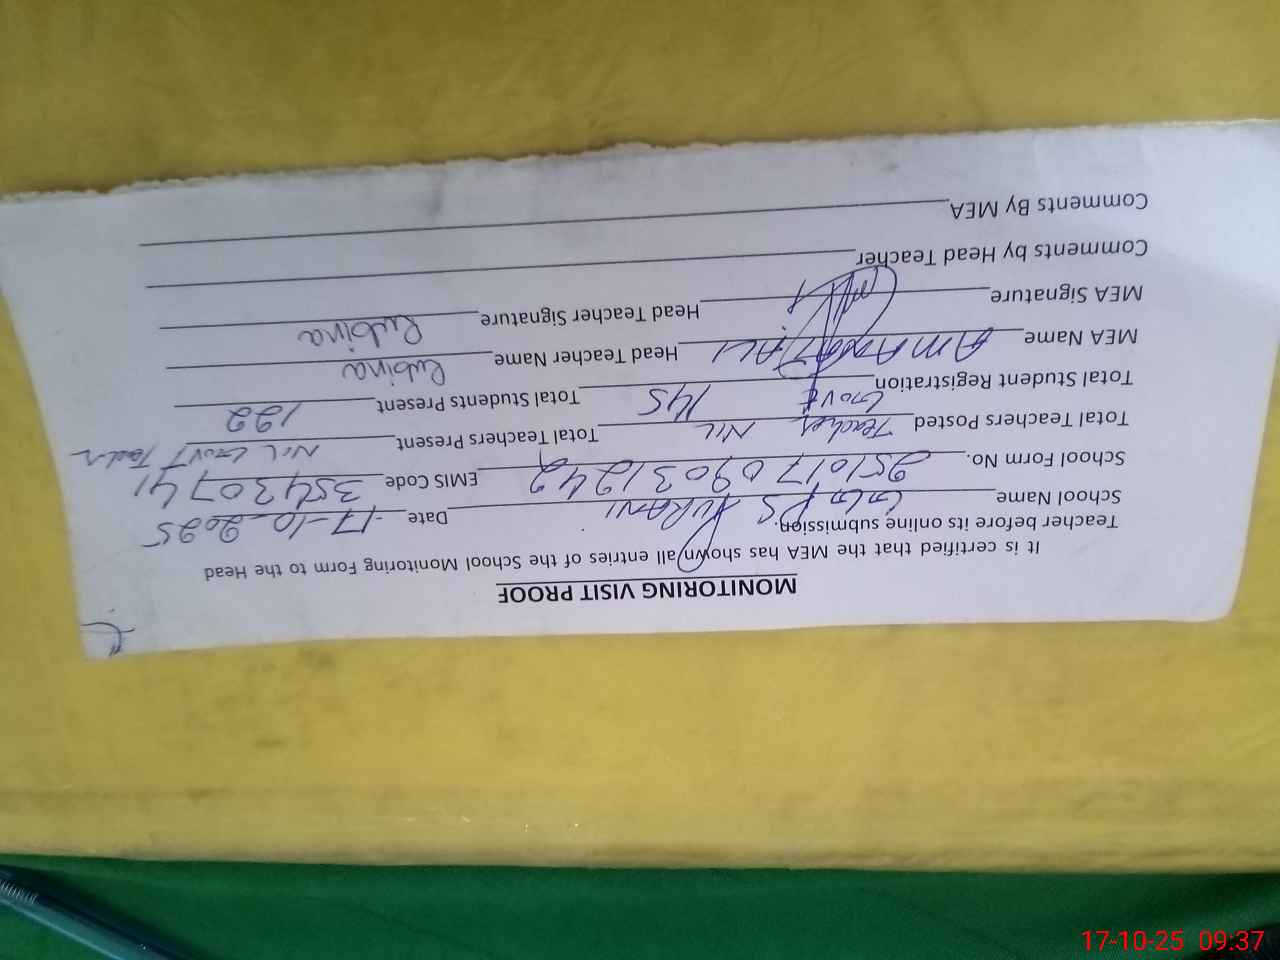 MONITORING VISIT PROOF
It is certified that the MEA has shown all entries of the School Monitoring Form to the Head
Teacher before its online submission.
School Name PS Date 17-10-2025
School Form No. 25101709031242 EMIS Code 35430741
Total Teachers Posted Teacher NIL Total Teachers Present NIL Govt Teacher
Total Student Registration Govt 145 Total Students Present 122
MEA Name AMANAT ALI Head Teacher Name Rubina
MEA Signature Head Teacher Signature Rubina
Comments by Head Teacher
Comments By MEA
17-10-25 09:37